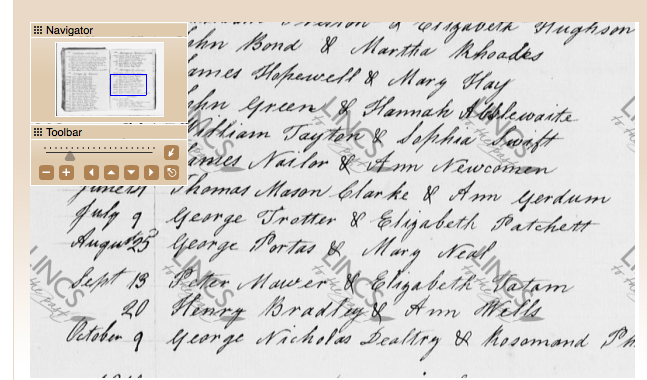 Navigator
Toolbar
& Elizabeth Hughson
John Bond & Martha Rhoades
James Hopewell & Mary Hay
John Green & Hannah
William Taylon & Sophia Swift
James Nailor & Ann Newcomen
Thomas Mason Clarke & Ann Gerdum
July 9 George Trotter & Elizabeth Patchett
August 25 George Portas & Mary Neal
Sept 13 Peter Mawer & Elizabeth Tatam
20 Henry Bradley & Ann Wells
October 9 George Nicholas Dealtry & Rosomand Ph
LINCS
to the Past